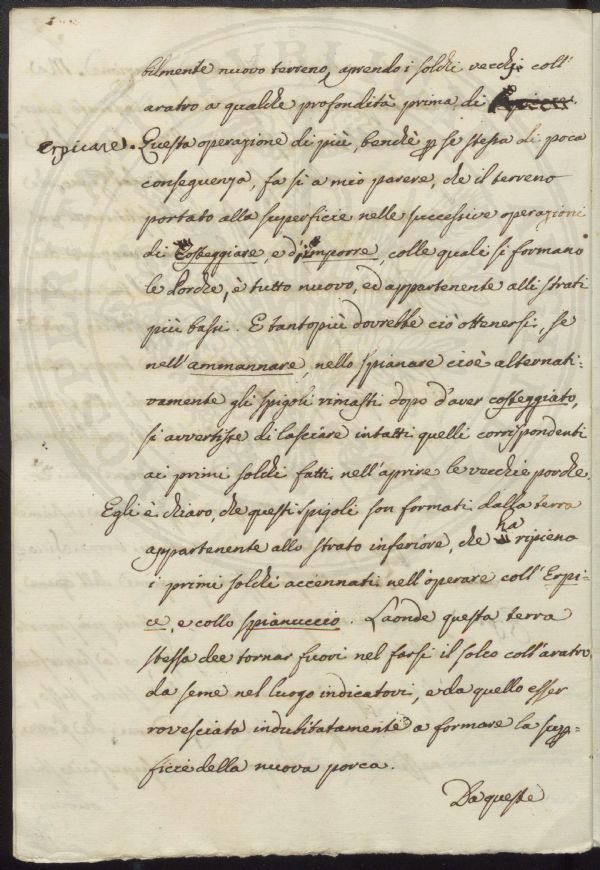 bilmente nuovo terreno, aprendo i solchi vecchj coll'
aratro a qualche profondità prima di
erpicare. Questa operazione di più, benchè p se stessa di poca
conseguenza, fa sì a mio parere, che il terreno
portato alla superficie nelle successive operazioni
di costeggiare, e d'imporre, colle quali si formano
le Porche, è tutto nuovo, ed appartenente alli strati
più bassi. E tantopiù dovrebbe ciò ottenersi, se
nell'ammannare nello spianare cioè alternati-
vamente gli spigoli rimasti dopo d'aver costeggiato,
si avvertisse di lasciare intatti quelli corrispondenti
ai primi solchi fatti nell'aprire le vecchie porche.
Egli è chiaro, che questi spigoli son formati dalla terra
appartenente allo strato inferiore, che ha ripieno
i primi solchi accennati nell'operare coll'Erpi-
ce, e collo spianuccio. Laonde questa terra
stessa dee tornar fuori nel farsi il solco coll'aratro
da seme nel luogo indicatovi, e da quello esser
rovesciata indubitatamente a formare la sup-
ficie della nuova porca.
Da queste